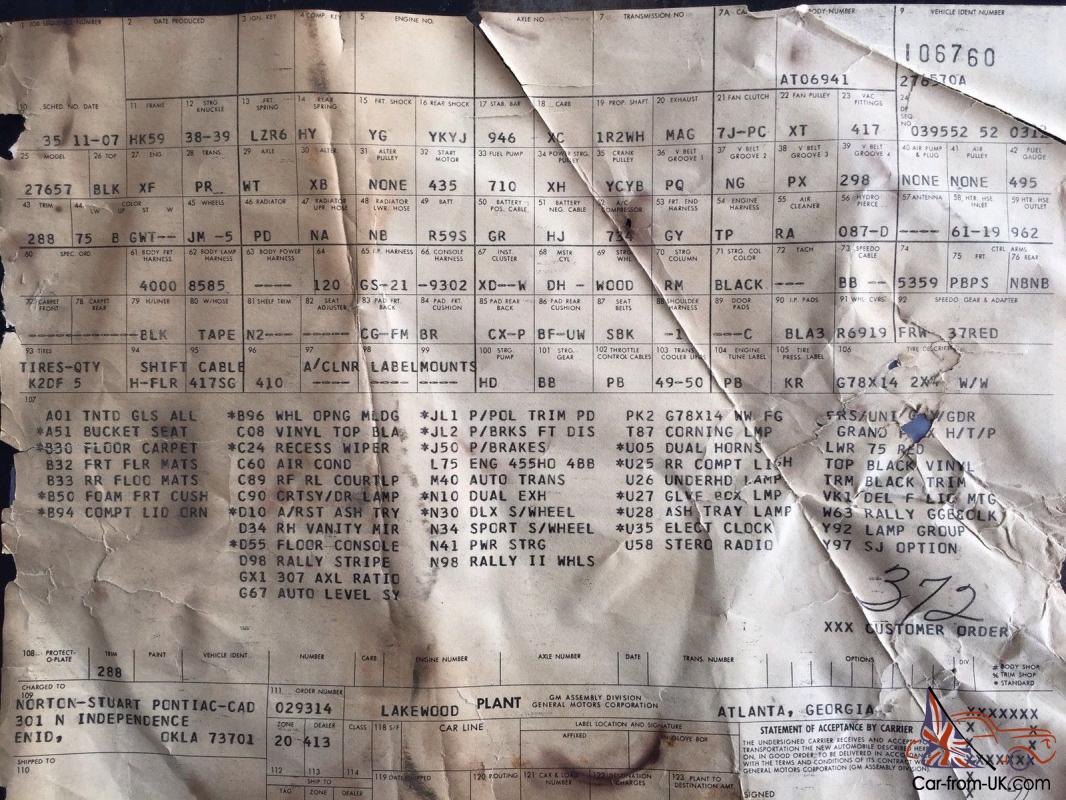 1 JOB SEQUENCE NUMBER 2 DATE PRODUCED 3 IGN. KEY 4 COMP. KEY 5 ENGINE NO. AXLE NO. 7 TRANSMISSION NO 7A BODY NUMBER 9 VEHICLE IDENT NUMBER
106760
AT06941 276570A
10 SCHED. NO. DATE 11 FRAME 12 STRG KNUCKLE 13 FRT. SPRING 14 REAR SPRING 15 FRT. SHOCK 16 REAR SHOCK 17 STAB. BAR 18 CARB 19 PROP. SHAFT 20 EXHAUST 21 FAN CLUTCH 22 FAN PULLEY 23 VAC FITTINGS 24
35 11-07 HK59 38-39 LZR6 HY YG YKYJ 946 XC 1R2WH MAG 7J-PC XT 417 039552 52 0312
25 MODEL 26 TOP 27 ENG. 28 TRANS. 29 AXLE 30 ALTER 31 ALTER PULLEY 32 START MOTOR 33 FUEL PUMP 34 POWER STRG. PULLEY 35 CRANK PULLEY 36 V BELT GROOVE 1 37 V BELT GROOVE 2 38 V BELT GROOVE 3 39 V BELT GROOVE 4 40 AIR PUMP & PLUG 41 AIR PULLEY 42 FUEL GAUGE
27657 BLK XF PR WT XB NONE 435 710 XH YCYB PQ NG PX 298 NONE NONE 495
43 TRIM 44 LW COLOR UP ST W 45 WHEELS 46 RADIATOR 47 RADIATOR UPR. HOSE 48 RADIATOR LWR. HOSE 49 BATT 50 BATTERY POS. CABLE 51 BATTERY NEG. CABLE 52 A/C COMPRESSOR 53 FRT. END HARNESS 54 ENGINE HARNESS 55 AIR CLEANER 56 HYDRO PIERCE 57 ANTENNA 58 HTR. HSE. INLET 59 HTR. HSE OUTLET
288 75 B GWT-- JM -5 PD NA NB R59S GR HJ 734 GY TP RA 087-D ---- 61-19 962
60 SPEC. ORD 61 BODY FRT HARNESS 62 BODY LAMP HARNESS 63 BODY POWER HARNESS 64 65 I.P. HARNESS 66 CONSOLE HARNESS 67 INST. CLUSTER 68 MSTR CYL 69 STRG WHL 70 STRG COLUMN 71 STRG. COL COLOR 72 TACH 73 SPEEDO CABLE 74 75 FRT. CTRL ARMS 76 REAR
4000 8585 ---- 120 GS-21 -9302 XD--W DH - WOOD RM BLACK --- BB -- 5359 PBPS NBNB
77 CARPET FRONT 78 CARPET REAR 79 H/LINER 80 W/HOSE 81 SHELF TRIM 82 SEAT ADJUSTER 83 PAD FRT. BACK 84 PAD FRT. CUSHION 85 PAD REAR BACK 86 PAD REAR CUSHION 87 SEAT BELTS 88 SHOULDER HARNESS 89 DOOR PADS 90 I.P. PADS 91 WHL CVRS 92 SPEEDO GEAR & ADAPTER
----------BLK TAPE N2---- ---- CG-FM BR CX-P BF-UW SBK -1 ---C BLA3 R6919 FRW 37RED
93 TIRES 94 95 96 97 98 99 100 STRG. PUMP 101 STRG. GEAR 102 THROTTLE CONTROL CABLES 103 TRANS. COOLER 104 ENGINE TUNE LABEL 105 TIRE PRESS. LABEL 106
TIRES-QTY SHIFT CABLE A/CLNR LABEL MOUNTS
K2DF 5 H-FLR 417SG 410 ---- ---- ---- HD BB PB 49-50 PB KR G78X14 W/W
107
A01 TNTD GLS ALL *B96 WHL OPNG MLDG *JL1 P/POL TRIM PD PK2 G78X14 WW FG
*A51 BUCKET SEAT C08 VINYL TOP BLA *JL2 P/BRKS FT DIS T87 CORNING LMP GRAND H/T/P
*B30 FLOOR CARPET *C24 RECESS WIPER *J50 P/BRAKES *U05 DUAL HORNS LWR 75 RED
B32 FRT FLR MATS C60 AIR COND L75 ENG 455HO 4BB *U25 RR COMPT LIGH TOP BLACK VINYL
B33 RR FLOO MATS C89 RF RL COURTLP M40 AUTO TRANS U26 UNDERHD LAMP TRM BLACK TRIM
*B50 FOAM FRT CUSH C90 CRTSY/DR LAMP *N10 DUAL EXH *U27 GLVE BOX LMP VK1 DEL F LIC MTG
*B94 COMPT LID ORN *D10 A/RST ASH TRY *N30 DLX S/WHEEL *U28 ASH TRAY LAMP W63 RALLY GGE&CLK
D34 RH VANITY MIR N34 SPORT S/WHEEL *U35 ELECT CLOCK Y92 LAMP GROUP
*D55 FLOOR CONSOLE N41 PWR STRG U58 STERO RADIO Y97 SJ OPTION
D98 RALLY STRIPE N98 RALLY II WHLS
GX1 307 AXL RATIO
G67 AUTO LEVEL SY
372
XXX CUSTOMER ORDER
108 PROTECT-O-PLATE TRIM PAINT VEHICLE IDENT NUMBER CARB ENGINE NUMBER AXLE NUMBER DATE TRANS. NUMBER OPTIONS DIV
288
# BODY SHOP
% TRIM SHOP
* STANDARD
CHARGED TO
109
NORTON-STUART PONTIAC-CAD
301 N INDEPENDENCE
ENID, OKLA 73701
SHIPPED TO
110
111 ORDER NUMBER
029314
ZONE DEALER CLASS
20 413
112 113 114
SHIP TO
TAG ZONE DEALER
LAKEWOOD PLANT GM ASSEMBLY DIVISION
GENERAL MOTORS CORPORATION ATLANTA, GEORGIA
XXXXXXX
118 S/F CAR LINE LABEL LOCATION AND SIGNATURE
AFFIXED IN GLOVE BOX
119 DATE SHIPPED 120 ROUTING 121 CAR & LOAD NUMBER 122 IDENTIFICATION CHARGES 123 PLANT TO DESTINATION AMT
STATEMENT OF ACCEPTANCE BY CARRIER
THE UNDERSIGNED CARRIER RECEIVES AND ACCEPTS
TRANSPORTATION THE NEW AUTOMOBILE DESCRIBED HEREIN
IN GOOD ORDER, TO BE DELIVERED IN ACCORDANCE
WITH THE TERMS AND CONDITIONS OF ITS CONTRACT WITH
GENERAL MOTORS CORPORATION (GM ASSEMBLY DIVISION)
SIGNED
Car-from-UK.com